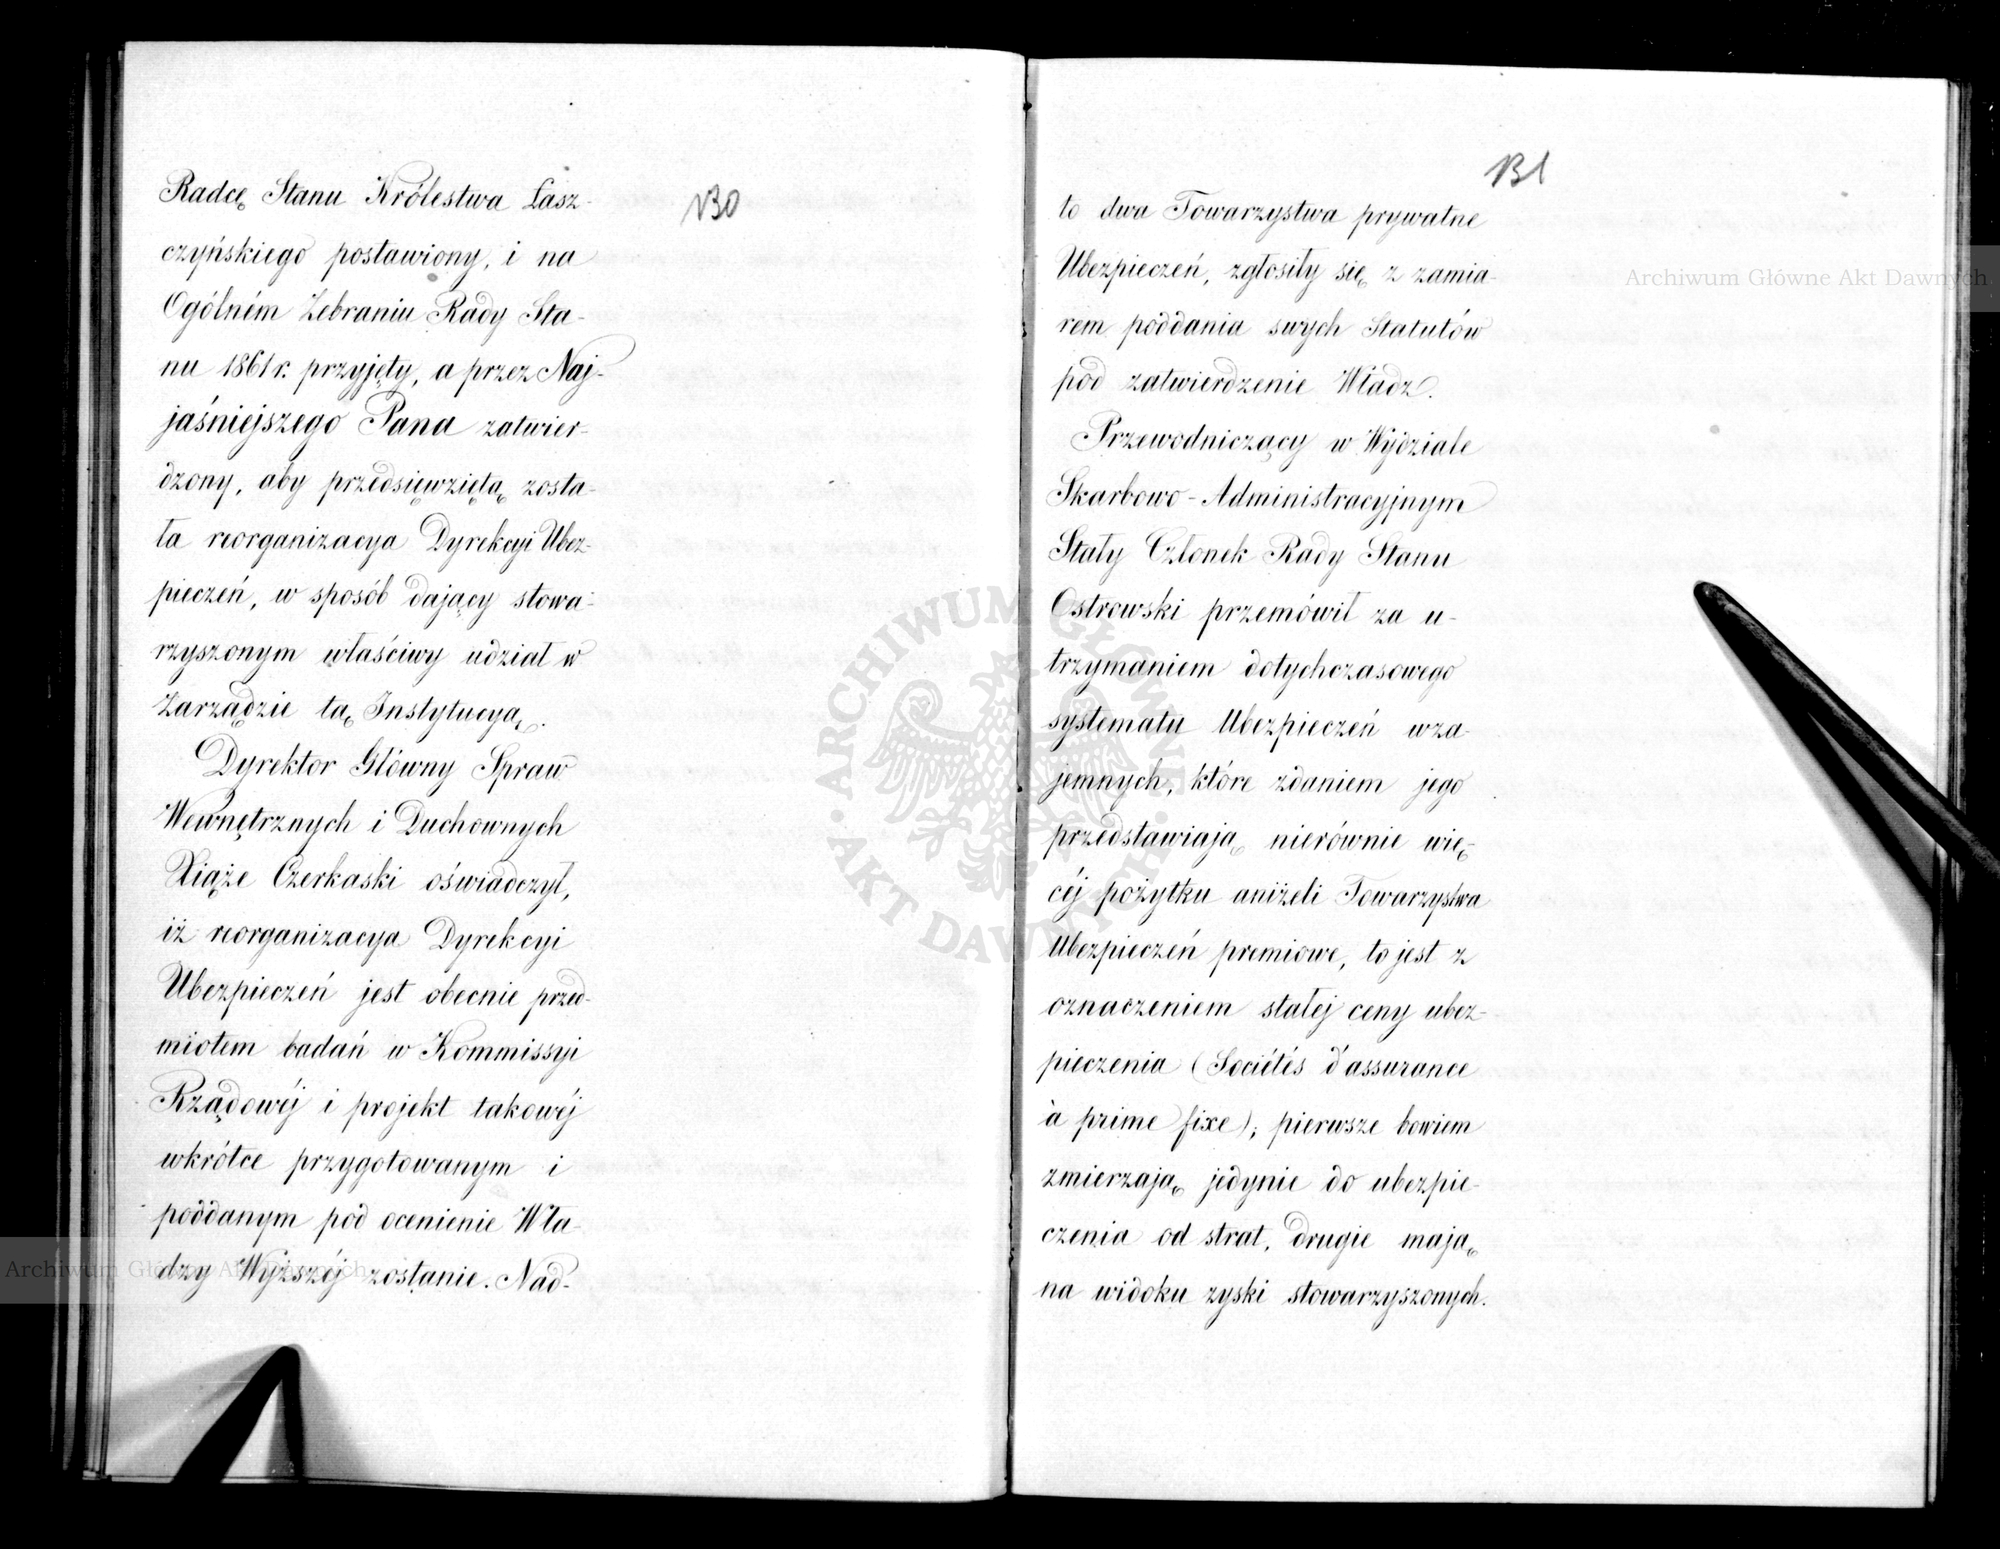 130
Radcę Stanu Królestwa Łasz-
czyńskiego postawiony, i na
Ogólném Zebraniu Rady Sta-
nu 1861 r. przyjęty, a przez Naj-
jaśniejszego Pana zatwier-
dzony, aby przedsięwziętą zosta-
ła reorganizacya Dyrekcyi Ubez-
pieczeń, w sposób dający stowa-
rzyszonym właściwy udział w
Zarządzie tą Instytucyą.
Dyrektor Główny Spraw
Wewnętrznych i Duchownych
Xiąże Czerkaski oświadczył,
iż reorganizacya Dyrekcyi
Ubezpieczeń jest obecnie przed-
miotem badań w Kommissyi
Rządowéj i projekt takowéj
wkrótce przygotowanym i
poddanym pod ocenienie Wła-
dzy Wyższéj zostanie. Nad-
131
to dwa Towarzystwa prywatne
Ubezpieczeń, zgłosiły się z zamia-
rem poddania swych Statutów
pod zatwierdzenie Władz.
Przewodniczący w Wydziale
Skarbowo-Administracyjnym
Stały Członek Rady Stanu
Ostrowski przemówił za u-
trzymaniem dotychczasowego
systematu Ubezpieczeń wza-
jemnych, które zdaniem jego
przedstawiają nierównie wię-
céj pożytku aniżeli Towarzystwa
Ubezpieczeń premiowe, to jest z
oznaczeniem stałej ceny ubez-
pieczenia (Sociétés d'assurance
à prime fixe); pierwsze bowiem
zmierzają jedynie do ubezpie-
czenia od strat, drugie mają
na widoku zyski stowarzyszonych.
Archiwum Główne Akt Dawnych
Archiwum Główne Akt Dawnych
ARCHIWUM GŁÓWNE AKT DAWNYCH